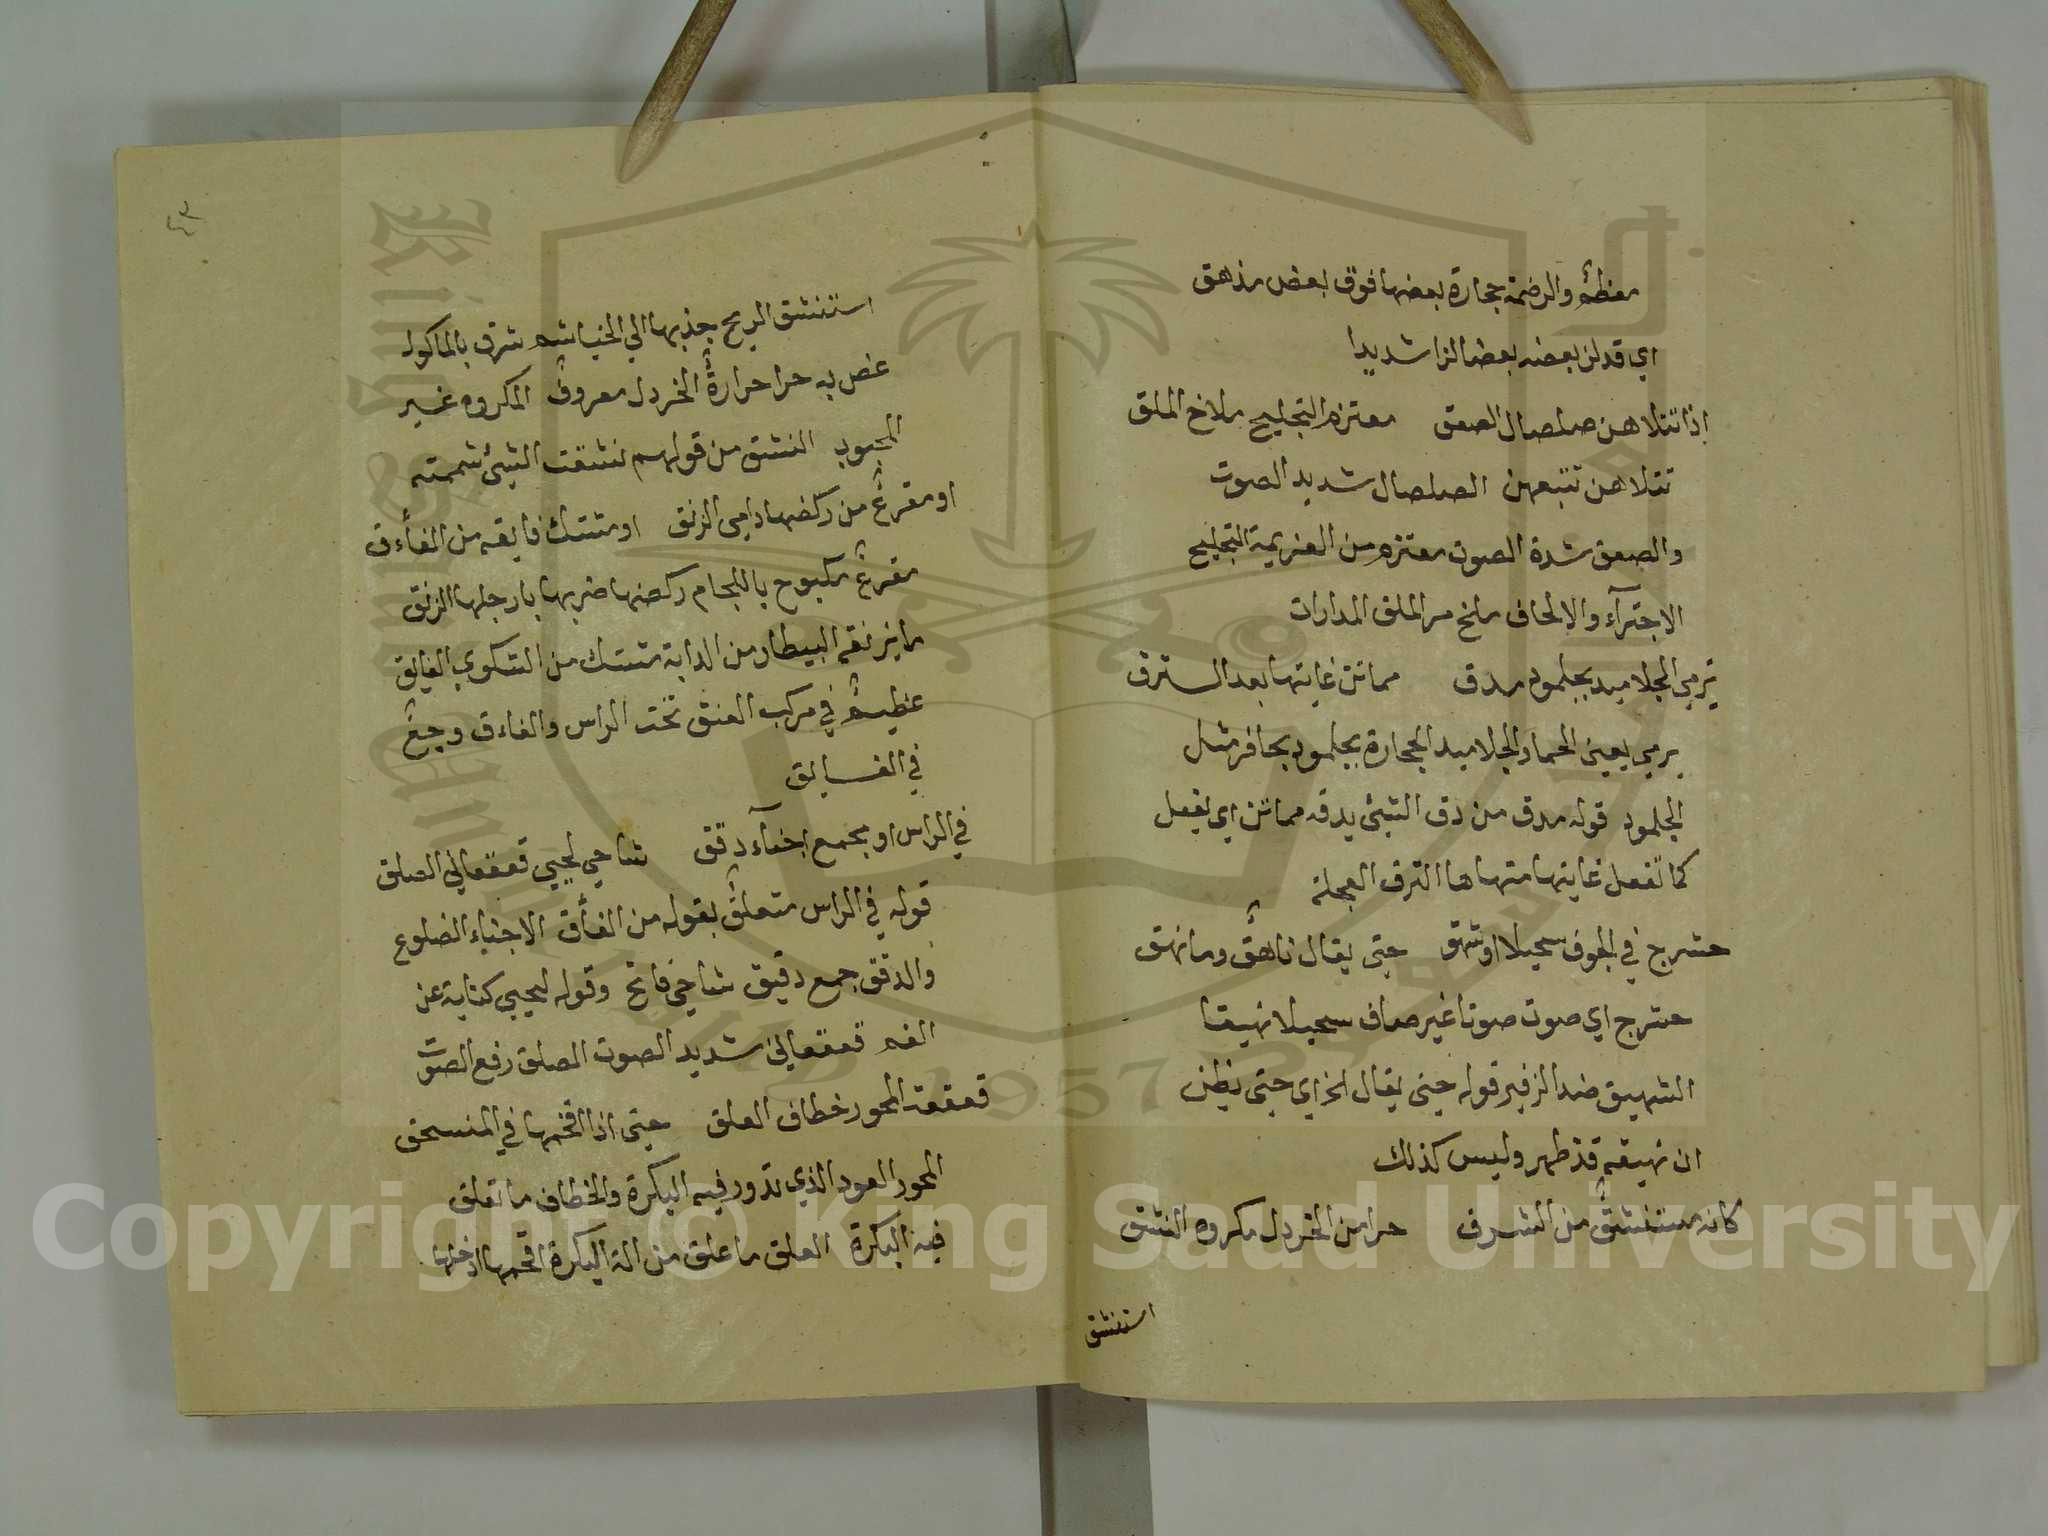 معظمه والرضمة حجارة بعضها فوق بعض مذهق
اي قد لز بعضه بعضا لزا شديدا
اذا تتلاهن صلصال الصعق معتزم التجليح ملاخ الملق
تتلاهن تتبعهن الصلصال شديد الصوت
والصعق شدة الصوت معتزم من العزيمة التجليح
الاجترآء والالحاف ملخ مر الملق المدارات
يرمي الجلاميد بجلمود مدق مماتن غايتها بعد النزق
يرمي يعين الحمار الجلاميد الحجارة بجلمود بحافر مثل
الجلمود قوله مدق من دق الشئ يدقه مماتن اي يفعل
كما تفعل غايتها منتهاها النزق العجلة
حشرج في الجوف سحيلا او شهق حتى يقال ناهق وما نهق
حشرج اي صوت صوتا غير صاف سحيلا نهيقا
الشهيق ضد الزفير قوله حتى يقال الخ اي حتى يظن
ان نهيقه قد ظهر وليس كذلك
كانه مستنشق من الشرق حرا من الخردل مكروه النشق
استنشق
٤٣
استنشق الريح جذبها الي الخياشم شرق بالماكول
غص به حرا حرارة الخردل معروف المكروه غير
المحبوب النشق من قولهم نشقت الشئ شممته
او مقرع من ركضها دامي الزنق او مشتك فايقه من الفأق
مقرع مكبوح باللجام ركضها ضربها بارجلها الزنق
ما يزنقه البيطار من الدابة مشتك من الشكوي الفايق
عظيم في مركب العنق تحت الراس والفاءق وجع
في الفايق
في الراس او مجمع احناء دقق شاحي لحيي قعقعاني الصلق
قوله في الراس متعلق بقوله من الفأق الاحناء الضلوع
والدقق جمع دقيق شاحي فاتح وقوله لحيي كناية عن
الفم قعقعاني شديد الصوت الصلق رفع الصوت
قعقعة المحور خطاف العلق حتى اذا اقحمها في المنسحق
المحور العود الذي تدور فيه البكرة والخطاف ما تعلق
فيه البكرة العلق ما علق من الة البكرة اقحمها ادخلها
Copyright © King Saud University
1957